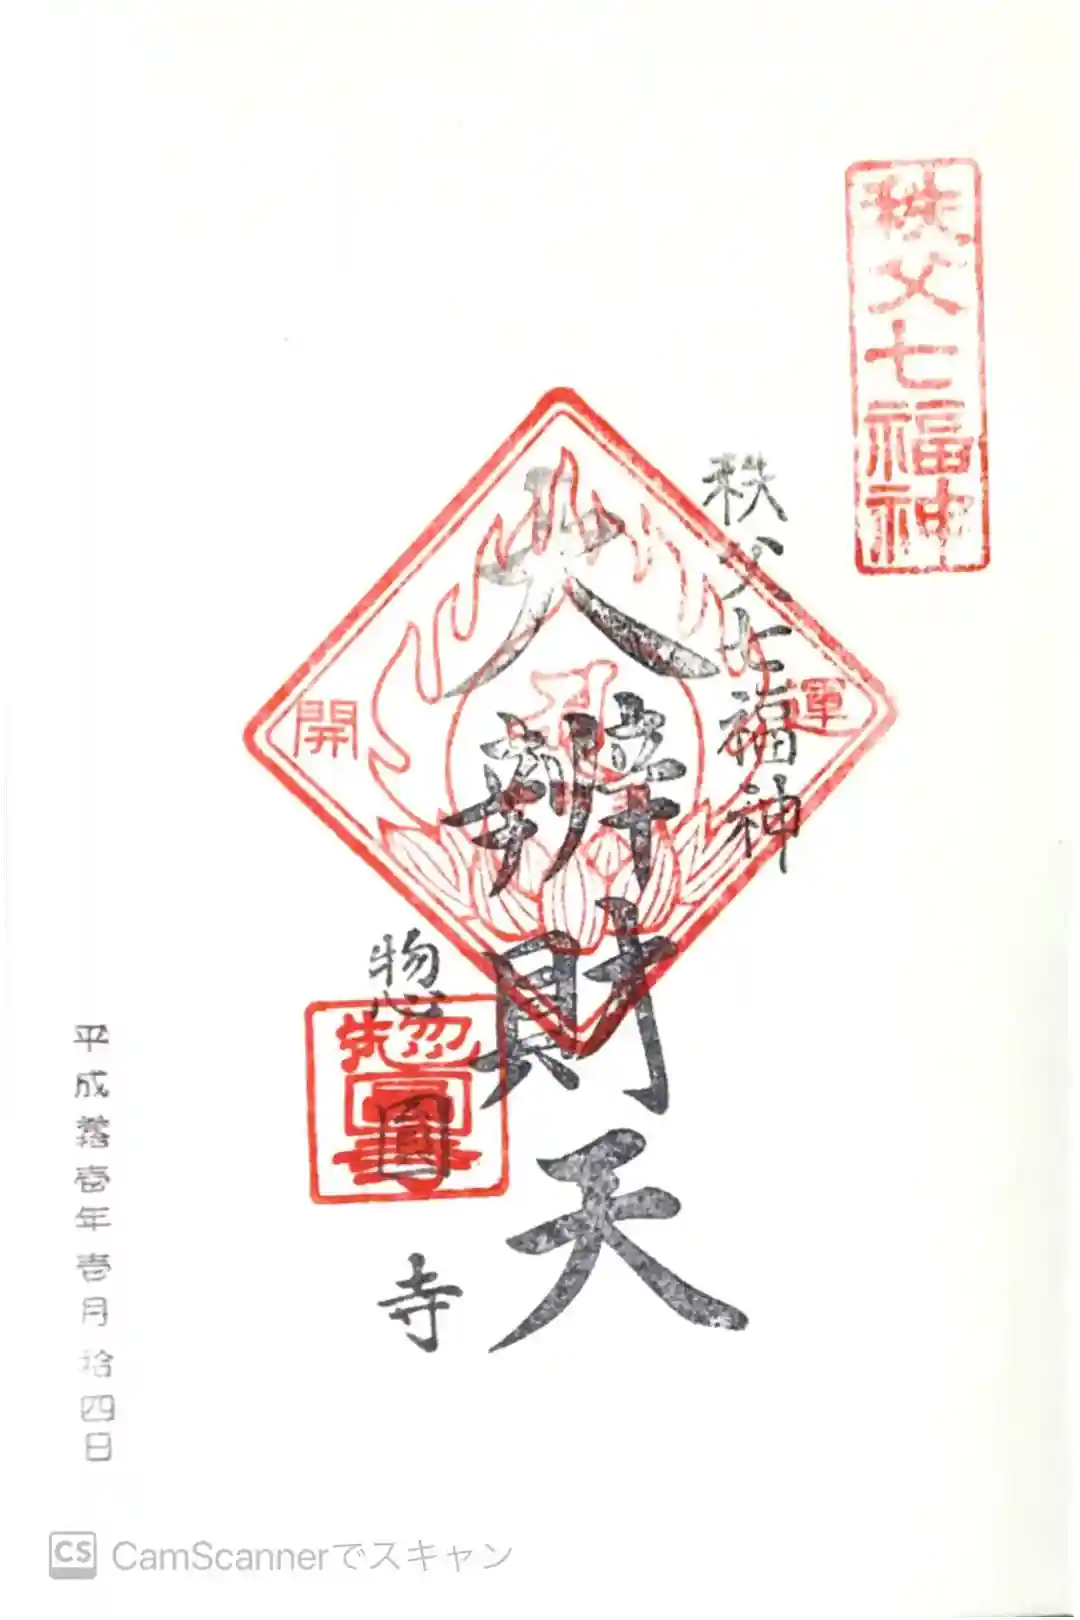 秩父七福神
秩父七福神
運
大辨財天
開
惣圓寺
惣圓寺
平成拾壱年壱月拾四日
CS CamScannerでスキャン